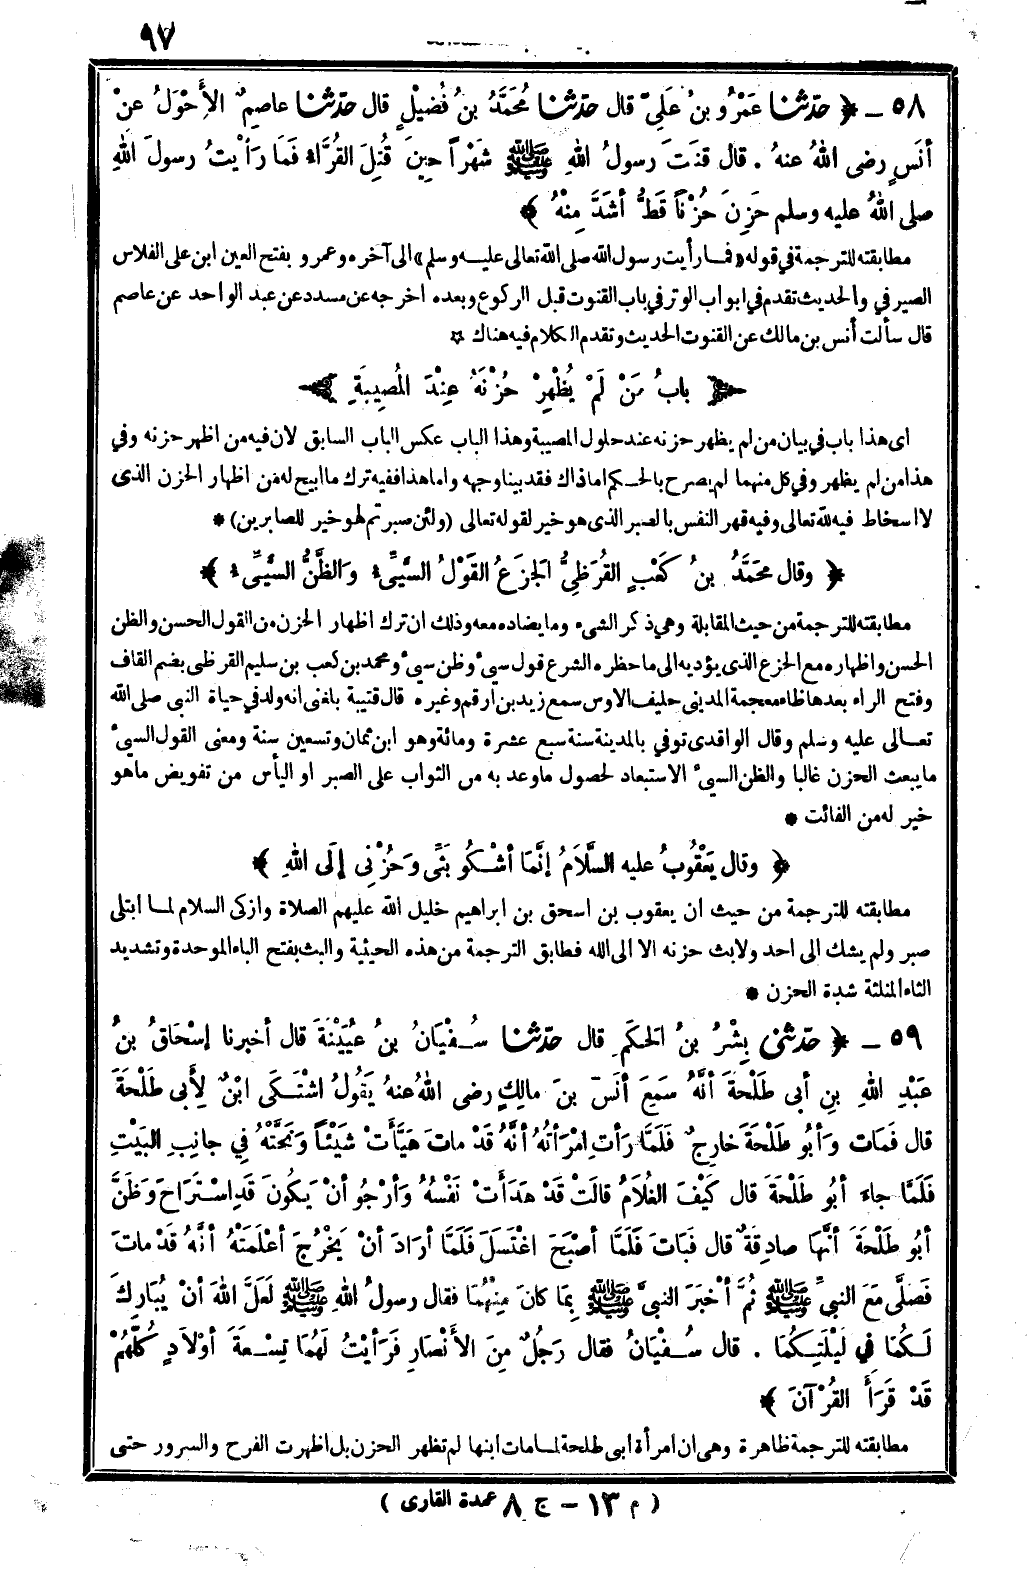 ٩٧
٥٨ ــ ﴿ حَدَّثَنا عَمْرُو بنُ عَلِيّ قال حَدَّثَنا مُحَمَّدُ بنُ فُضَيْلٍ قال حَدَّثَنا عاصِمٌ الأَحْوَلُ عنْ
أنَسٍ رضى اللهُ عنهُ . قال قنَتَ رسولُ اللهِ ﷺ شَهْراً حِينَ قُتِلَ القُرَّاءُ فَمَا رَأيْتُ رسولَ اللهِ
صلى اللهُ عليه وسلم حَزِنَ حُزْناً قَطُّ أشَدَّ مِنْهُ ﴾
مطابقته للترجمة في قوله «فما رأيت رسول الله صلى الله تعالى عليه وسلم» الى آخره وعمرو بفتح العين ابن على الفلاس
الصيرفي والحديث تقدم في ابواب الوتر في باب القنوت قبل الركوع وبعده اخرجه عن مسدد عن عبد الواحد عن عاصم
قال سألت أنس بن مالك عن القنوت الحديث وتقدم الكلام فيه هناك ☆
﴿ بابُ مَنْ لَمْ يُظْهِرْ حُزْنَهُ عِنْدَ المُصِيبَةِ ﴾
اى هذا باب في بيان من لم يظهر حزنه عند حلول المصيبة وهذا الباب عكس الباب السابق لان فيه من اظهر حزنه وفي
هذا من لم يظهر وفي كل منهما لم يصرح بالحكم اما ذاك فقد بينا وجهه واما هذا ففيه ترك ما ابيح له من اظهار الحزن الذى
لا اسخاط فيه لله تعالى وفيه قهر النفس بالصبر الذى هو خير لقوله تعالى (ولئن صبرتم لهو خير للصابرين) *
﴿ وقال محَمَّدُ بنُ كَعْبٍ القُرَظِيُّ الجَزَعُ القَوْلُ السَّيِّىءُ والظَّنُّ السَّيِّىءُ ﴾
مطابقته للترجمة من حيث المقابلة وهي ذكر الشىء وما يضاده معه وذلك ان ترك اظهار الحزن من القول الحسن والظن
الحسن واظهاره مع الجزع الذى يؤديه الى ما حظره الشرع قول سىء وظن سىء ومحمد بن كعب بن سليم القرظى بضم القاف
وفتح الراء بعدها ظاء معجمة المدنى حليف الاوس سمع زيد بن ارقم وغيره قال قتيبة بلغنى انه ولد في حياة النبى صلى الله
تعالى عليه وسلم وقال الواقدى توفي بالمدينة سنة سبع عشرة ومائة وهو ابن ثمان وتسعين سنة ومعنى القول السىء
ما يبعث الحزن غالبا والظن السىء الاستبعاد لحصول ما وعد به من الثواب على الصبر او اليأس من تفويض ما هو
خير له من الفائت *
﴿ وقال يَعْقُوبُ عليه السَّلاَمُ إنَّمَا أشْكُو بَثِّى وَحُزْنِى إلَى اللهِ ﴾
مطابقته للترجمة من حيث ان يعقوب بن اسحق بن ابراهيم خليل الله عليهم الصلاة وازكى السلام لما ابتلى
صبر ولم يشك الى احد ولا بث حزنه الا الى الله فطابق الترجمة من هذه الحيثية والبث بفتح الباء الموحدة وتشديد
الثاء المثلثة شدة الحزن *
٥٩ ــ ﴿ حَدَّثَنى بِشْرُ بنُ الحَكَمِ قال حَدَّثَنا سُفْيَانُ بنُ عُيَيْنَةَ قال أخبرنا إسْحَاقُ بنُ
عَبْدِ اللهِ بنِ أبى طَلْحَةَ أنَّهُ سَمِعَ أنَسَ بنَ مالِكٍ رضى اللهُ عنهُ يَقُولُ اشْتَكَى ابْنٌ لِأَبى طَلْحَةَ
قال فَمَات وَأبُو طَلْحَةَ خارِجٌ فَلَمَّا رَأتِ امْرَأتُهُ أنَّهُ قَدْ ماتَ هَيَّأَتْ شَيْئاً وَنَحَّتْهُ فِي جانِبِ البَيْتِ
فَلَمَّا جاءَ أبُو طَلْحَةَ قال كَيْفَ الغُلاَمُ قالَتْ قَدْ هَدَأَتْ نَفْسُهُ وَأرْجُو أنْ يَكُونَ قَدِ اسْتَرَاحَ وَظَنَّ
أبُو طَلْحَةَ أنَّها صادِقةٌ قال فَبَاتَ فَلَمَّا أصْبَحَ اغْتَسَلَ فَلَمَّا أرَادَ أنْ يَخْرُجَ أعْلَمَتْهُ أنَّهُ قَدْ ماتَ
فَصَلَّى مَعَ النبيِّ ﷺ ثُمَّ أخْبَرَ النبيَّ ﷺ بِمَا كانَ مِنْهُمَا فقال رسولُ اللهِ ﷺ لَعَلَّ اللهَ أنْ يُبَارِكَ
لَكُمَا فِي لَيْلَتِكُمَا . قال سُفْيَانُ فقال رَجُلٌ مِنَ الأنْصَارِ فَرَأيْتُ لَهُمَا تِسْعَةَ أوْلاَدٍ كُلُّهُمْ
قَدْ قَرَأَ القُرْآنَ ﴾
مطابقته للترجمة ظاهرة وهى ان امرأة ابى طلحة لما مات ابنها لم تظهر الحزن بل اظهرت الفرح والسرور حتى
( م ١٣ – ج ٨ عمدة القارى )